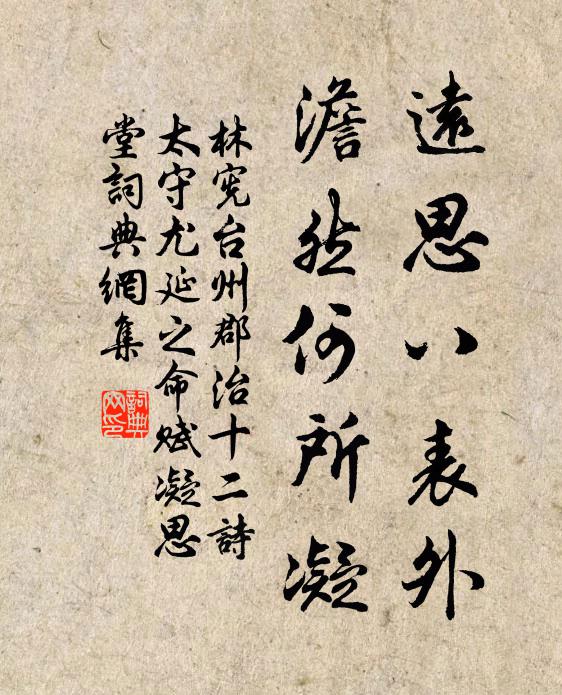 遠思八表外
澹然何所凝
林宪台州郡治十二詩
太守尤延之命賦凝思
堂詞典網集
詞典
网印